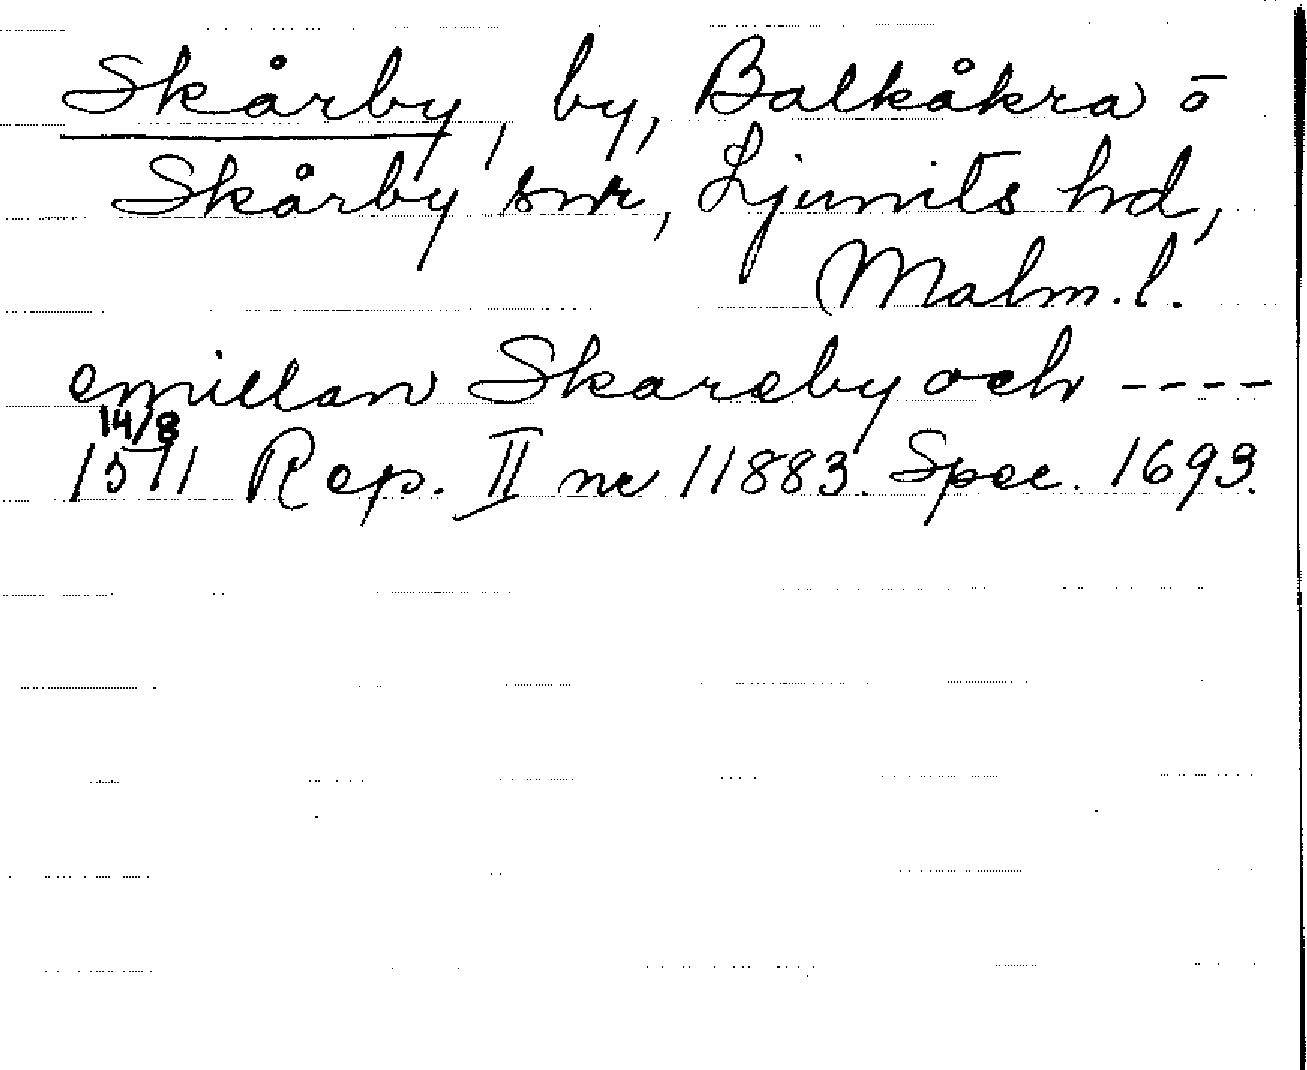 Skårby, by, Balkåkra o
Skårby snr, Ljunits hd,
Malm. l.
emillan Skareby och ----
14/8
1511 Rep. II nr 11883. Spec. 1693.